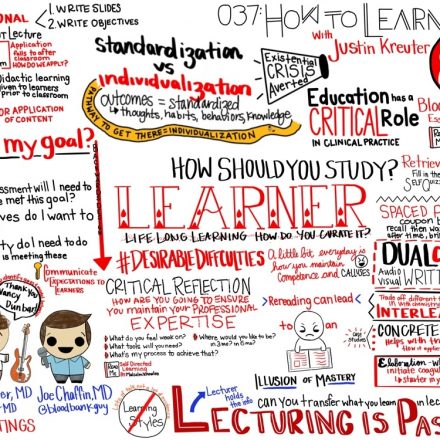 ONAL
1. WRITE SLIDES
2. WRITE OBJECTIVES
OT LECTURE
Application
falls to after
classroom
HOW DO WE APPLY?
Didactic learning
given to learners
prior to classroom
FOR APPLICATION
OF CONTENT
Standardization
vs
individualization
outcomes = standardized
thoughts, habits, behaviors, knowledge
PATHWAY TO GET THERE = INDIVIDUALIZATION
037: HOW TO LEARN
with
Justin Kreuter
Existential
CRISIS
Averted
Education has a
CRITICAL Role
IN CLINICAL PRACTICE
Bloo
Ess
my goal?
sessment will I need to
e met this goal?
ves do I want to
ty do I need to do
is meeting these
Communicate
EXPECTATIONS
to LEARNERS
Thank You
Nancy
Dunbar!
er, MD
MD
TINGS
Joe Chaffin, MD
@bloodbankguy
HOW SHOULD YOU STUDY?
LEARNER
LIFE LONG LEARNING HOW DO YOU CURATE IT?
#DESIRABLE DIFFICULTIES
A little bit, everyday is
how you maintain
Competence and CALLUSES
CRITICAL REFLECTION
HOW ARE YOU GOING TO ENSURE
YOU MAINTAIN YOUR PROFESSIONAL
EXPERTISE
What do you feel weak on?
What tools will you need?
What's my process to achieve that?
Where would you like to be?
Self Directed
Learning
Malcolm Knowles
Learning
Styles
Rereading can lead
to
an
ILLUSION OF MASTERY
Lecturer
holds the
info
Can you transfer what you learn
LECTURING IS PAS
Retrie
Fill in the
SELF QUIZ
SPACED
coupon b
recall then wa
after time, bri
DUAL
Audio
Visual
WRITTEN
Trade off different
INTERLE
CONCRETE
Helps with tra
Elaboration
initiate coagula